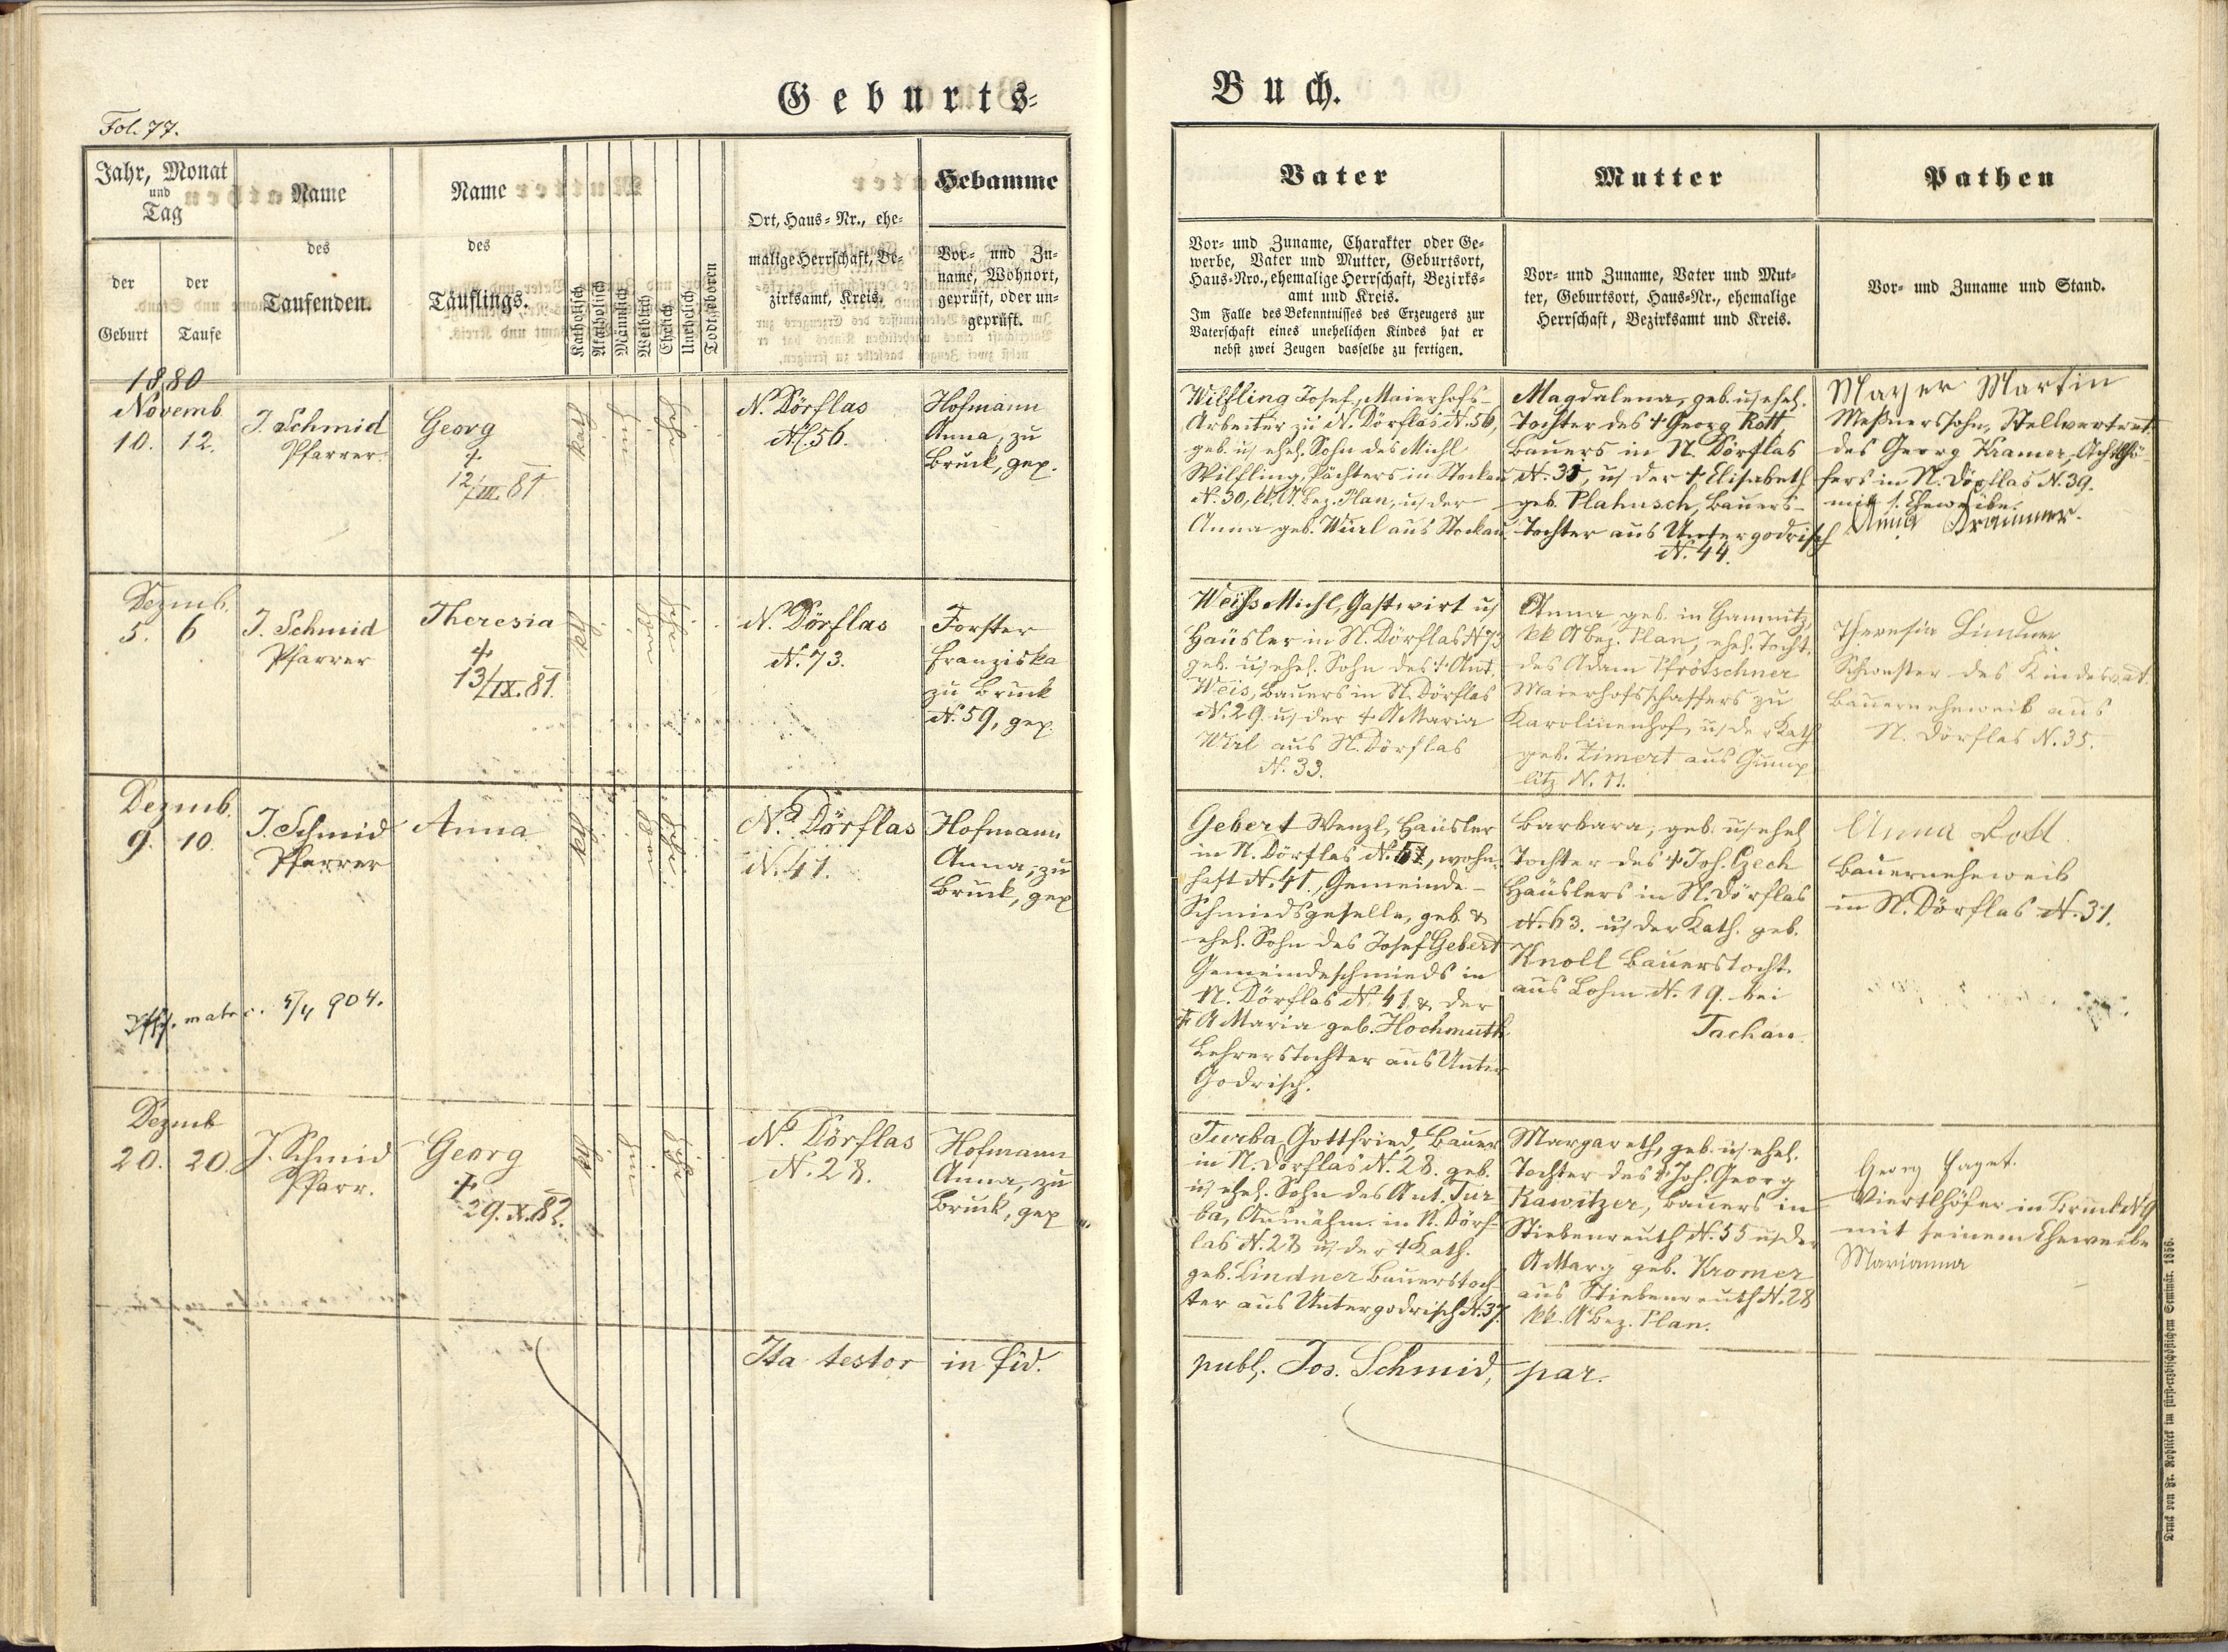 Geburts-
Buch.
Fol. 77.
Jahr, Monat
und
Tag
der
Geburt
der
Taufe
Name
des
Taufenden.
Name
des
Täuflings.
Katholisch
Akatholisch
Männlich
Weiblich
Ehelich
Unehelich
Todtgeboren
Ort, Haus-Nr., ehe-
malige Herrschaft, Be-
zirksamt, Kreis.
Hebamme
Vor- und Zu-
name, Wohnort,
geprüft, oder un-
geprüft.
Vater
Vor- und Zuname, Charakter oder Ge-
werbe, Vater und Mutter, Geburtsort,
Haus-Nro., ehemalige Herrschaft, Bezirks-
amt und Kreis.
Im Falle des Bekenntnisses des Erzeugers zur
Vaterschaft eines unehelichen Kindes hat er
nebst zwei Zeugen dasselbe zu fertigen.
Mutter
Vor- und Zuname, Vater und Mut-
ter, Geburtsort, Haus-Nr., ehemalige
Herrschaft, Bezirksamt und Kreis.
Pathen
Vor- und Zuname und Stand.
1880
Novemb
10. 12.
J. Schmid
Pfarrer.
Georg
+
12/III. 81
kath
Ehe
N. Dörflas
N. 56.
Hofmann
Anna, zu
Bruck, gep.
Wilfling Josef, Maierhofs-
Arbeiter zu N. Dörflas N. 56,
geb. u ehel. Sohn des Michl
Wilfling, Pächters in Stockau
N. 30, Bez. Plan, u der
Anna geb. Würl aus Stockau.
Magdalena, geb. u ehel.
Tochter des + Georg Rott,
Bauers in N. Dörflas
N. 31, u der + Elisabeth
geb. Plahusch, Bauers-
Tochter aus Untergodrisch
N. 44.
Mayer Martin
Meßnerssohn, Stellvertret.
des Georg Kramer, Achtlhö-
fers in N. Dörflas N. 39.
mit s. Eheweibe.
Anna Krammer.
Dezmb.
5. 6
J. Schmid
Pfarrer
Theresia
+
13/IX. 81.
N. Dörflas
N. 73.
Forster
Franziska
zu Bruck
N. 59, gep.
Weiss Michl, Gastwirt u
Häusler in N. Dörflas N 73
geb. u ehel. Sohn des + Ant.
Weis, Bauers in N. Dörflas
N. 29 u der + A Maria
Wirl aus N. Dörflas
N. 33.
Anna geb. in Gamnitz,
kk Bez. Plan, ehel. Tocht.
des Adam Pfrötschner
Maierhofsschaffers zu
Karolinenhof, u der Kath
geb. Zimert aus Gump
litz N. 11.
Theresia Lindner
Schwester des Kindesvat.
Bauerneheweib aus
N. Dörflas N. 35.
Dezmb.
9. 10.
J. Schmid
Pfarrer
Anna
N. Dörflas
N. 41.
Hofmann
Anna, zu
Bruck, gep
matric. 5/4 904.
Gebert Wenzl, Häusler
in N. Dörflas N. 61, wohn-
haft N. 41., Gemeinde-
Schmiedsgeselle, geb. &
ehel. Sohn des Josef Gebert
Gemeindeschmieds in
N. Dörflas N. 41. & der
+ A Maria geb. Hochmuth
Lehrerstochter aus Unter
Godrisch.
Barbara, geb. u ehel
Tochter des + Joh. Zech
Häuslers in N. Dörflas
N. 63. u der Kath. geb.
Knoll Bauerstocht.
aus Lohm N. 19. bei
Tachau.
Anna Rott
Bauerneheweib
in N. Dörflas N. 31.
Dezmb
20. 20.
J. Schmid
Pfarr.
Georg
+
29. X. 82.
N. Dörflas
N. 28.
Hofmann
Anna, zu
Bruck, gep
Turba Gottfried, Bauer
in N. Dörflas N. 28. geb.
u ehel. Sohn des Ant. Tur
ba, Ausnähm. in N. Dörf-
las N. 28 u der + Kath.
geb. Lindner Bauerstoch
ter aus Untergodrisch N. 37.
Margareth, geb. u ehel.
Tochter des + Joh. Georg
Rawitzer, Bauers in
Stiebenreuth N. 55 u der
A Marg geb. Kromer
aus Stiebenreuth N. 28
kk. Bez. Plan.
Georg
Viertlhöfer in Bruck N 9
mit seinem Eheweibe
Marianna
Ita testor in fid.
publ. Jos. Schmid, par.